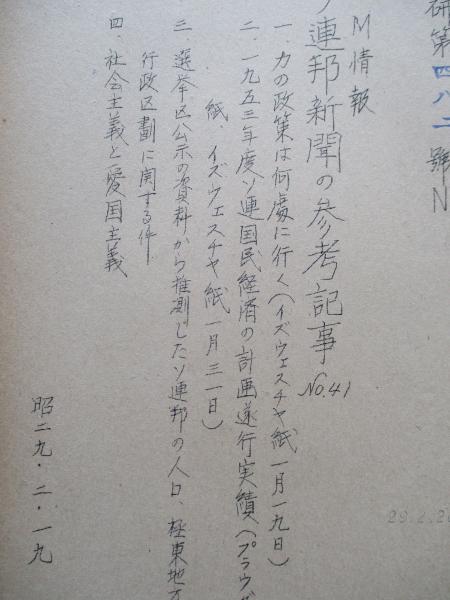 研第四八二號N
M情報
ソ連邦新聞の参考記事 No.41
一、力の政策は何處に行く(イズウェスチヤ紙一月一九日)
二、一九五三年度ソ連国民経済の計画遂行実績(プラウダ
紙、イズウェスチヤ紙一月三一日)
三、選挙区公示の資料から推測したソ連邦の人口、極東地方
行政区劃に関する件
四、社会主義と愛国主義
昭二九・二・一九
29.2.20